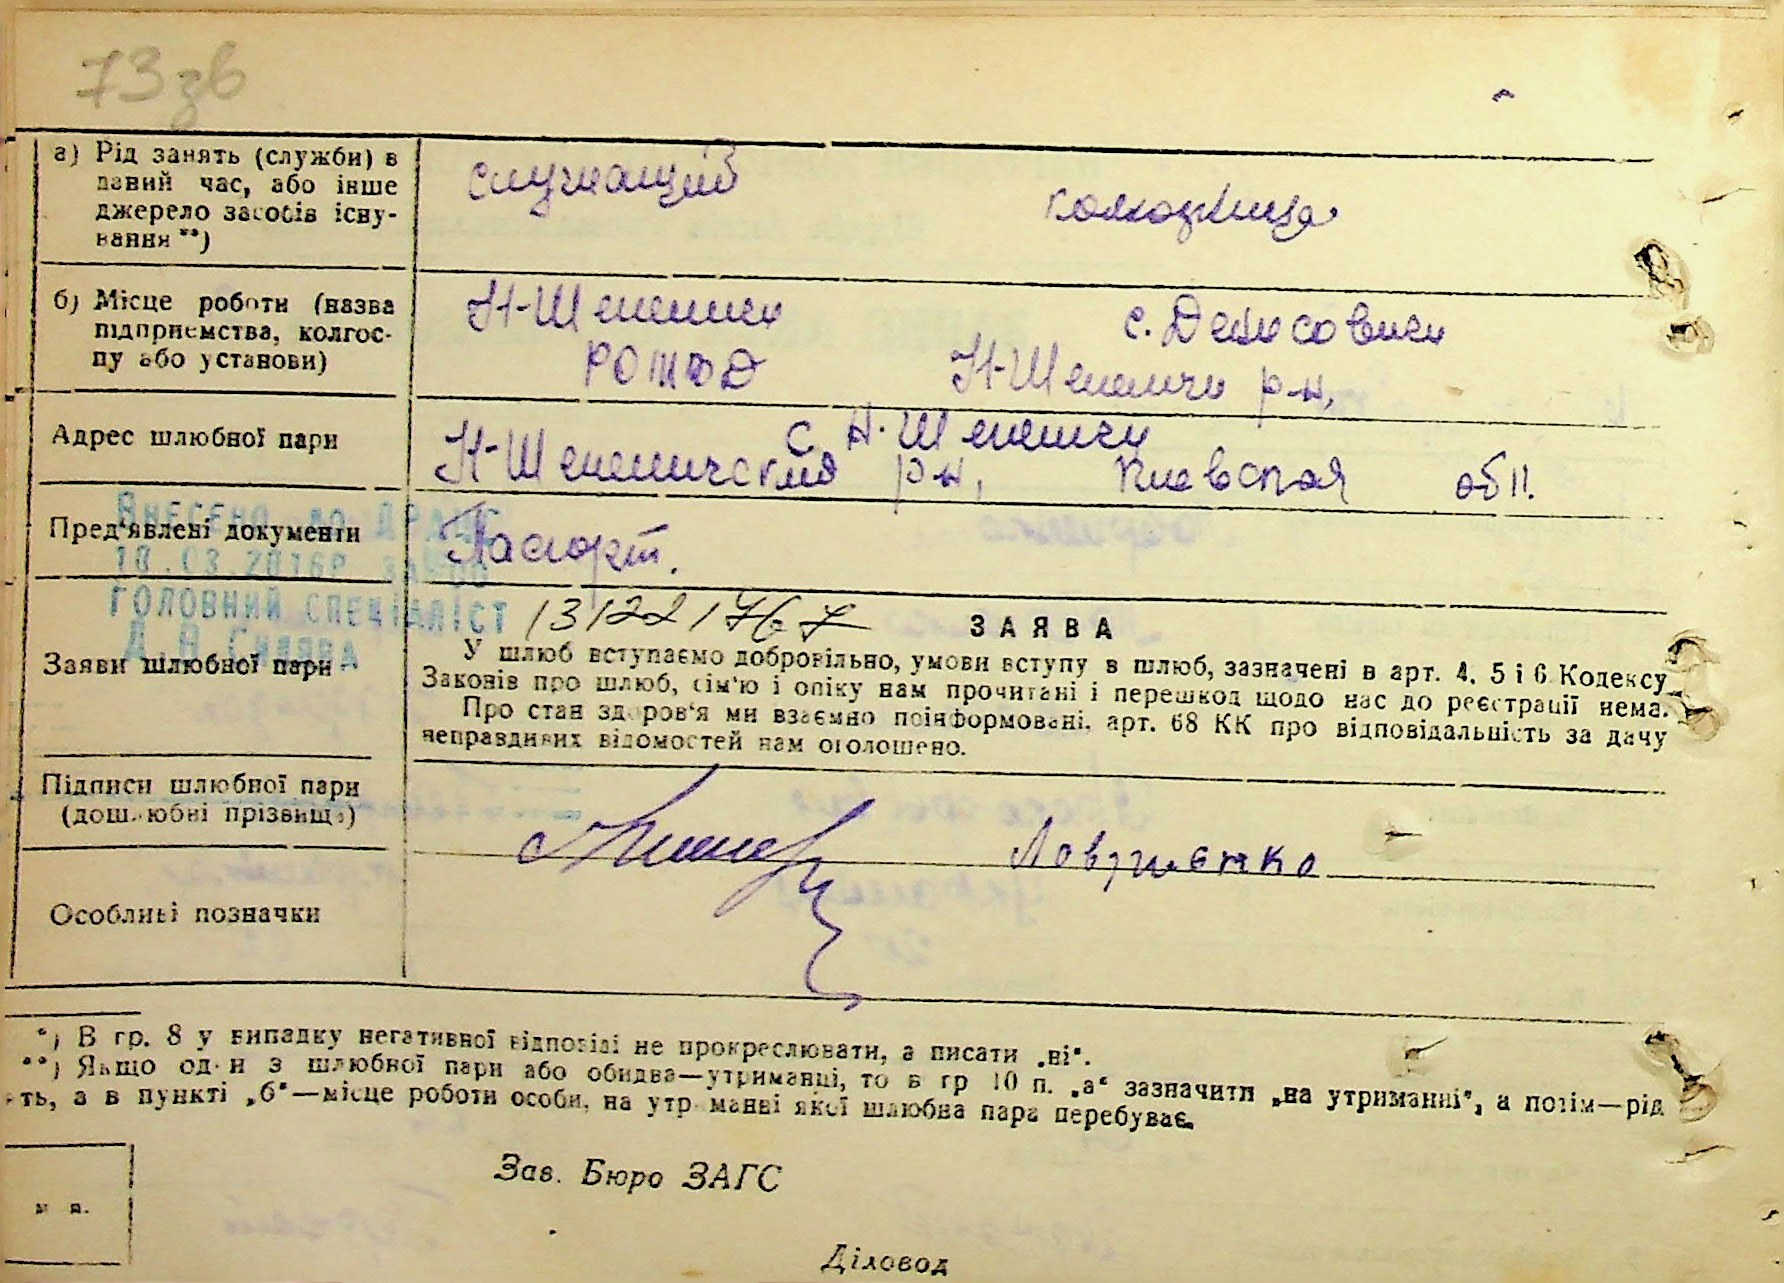 73зв
а) Рід занять (служби) в
даний час, або інше
джерело засобів існу-
вання **)
служащий
колхозница
б) Місце роботи (назва
підприємства, колгос-
пу або установи)
Н-Шепеличи
с. Денисовичи
Н-Шепеличи р-н,
Адрес шлюбної пари
с Н-Шепеличи
Н-Шепеличский р-н, Киевская обл.
Пред'явлені документи
Паспорт.
Внесено до ДРАЦС
18.03.2016р за №00
Головний спеціаліст
13122 1767
Заяви шлюбної пари
ЗАЯВА
У шлюб вступаємо добровільно, умови вступу в шлюб, зазначені в арт. 4, 5 і 6 Кодексу
Законів про шлюб, сім'ю і опіку нам прочитані і перешкод щодо нас до реєстрації нема.
Про стан здоров'я ми взаємно поінформовані, арт. 68 КК про відповідальність за дачу
неправдивих відомостей нам оголошено.
Підписи шлюбної пари
(дошлюбні прізвища)
Особливі позначки
*) В гр. 8 у випадку негативної відповіді не прокреслювати, а писати „ні“.
**) Якщо один з шлюбної пари або обидва—утриманці, то в гр 10 п. „а“ зазначити „на утриманні“, а потім—рід
ть, а в пункті „б“—місце роботи особи, на утриманні якої шлюбна пара перебуває.
Зав. Бюро ЗАГС
м п.
Діловод